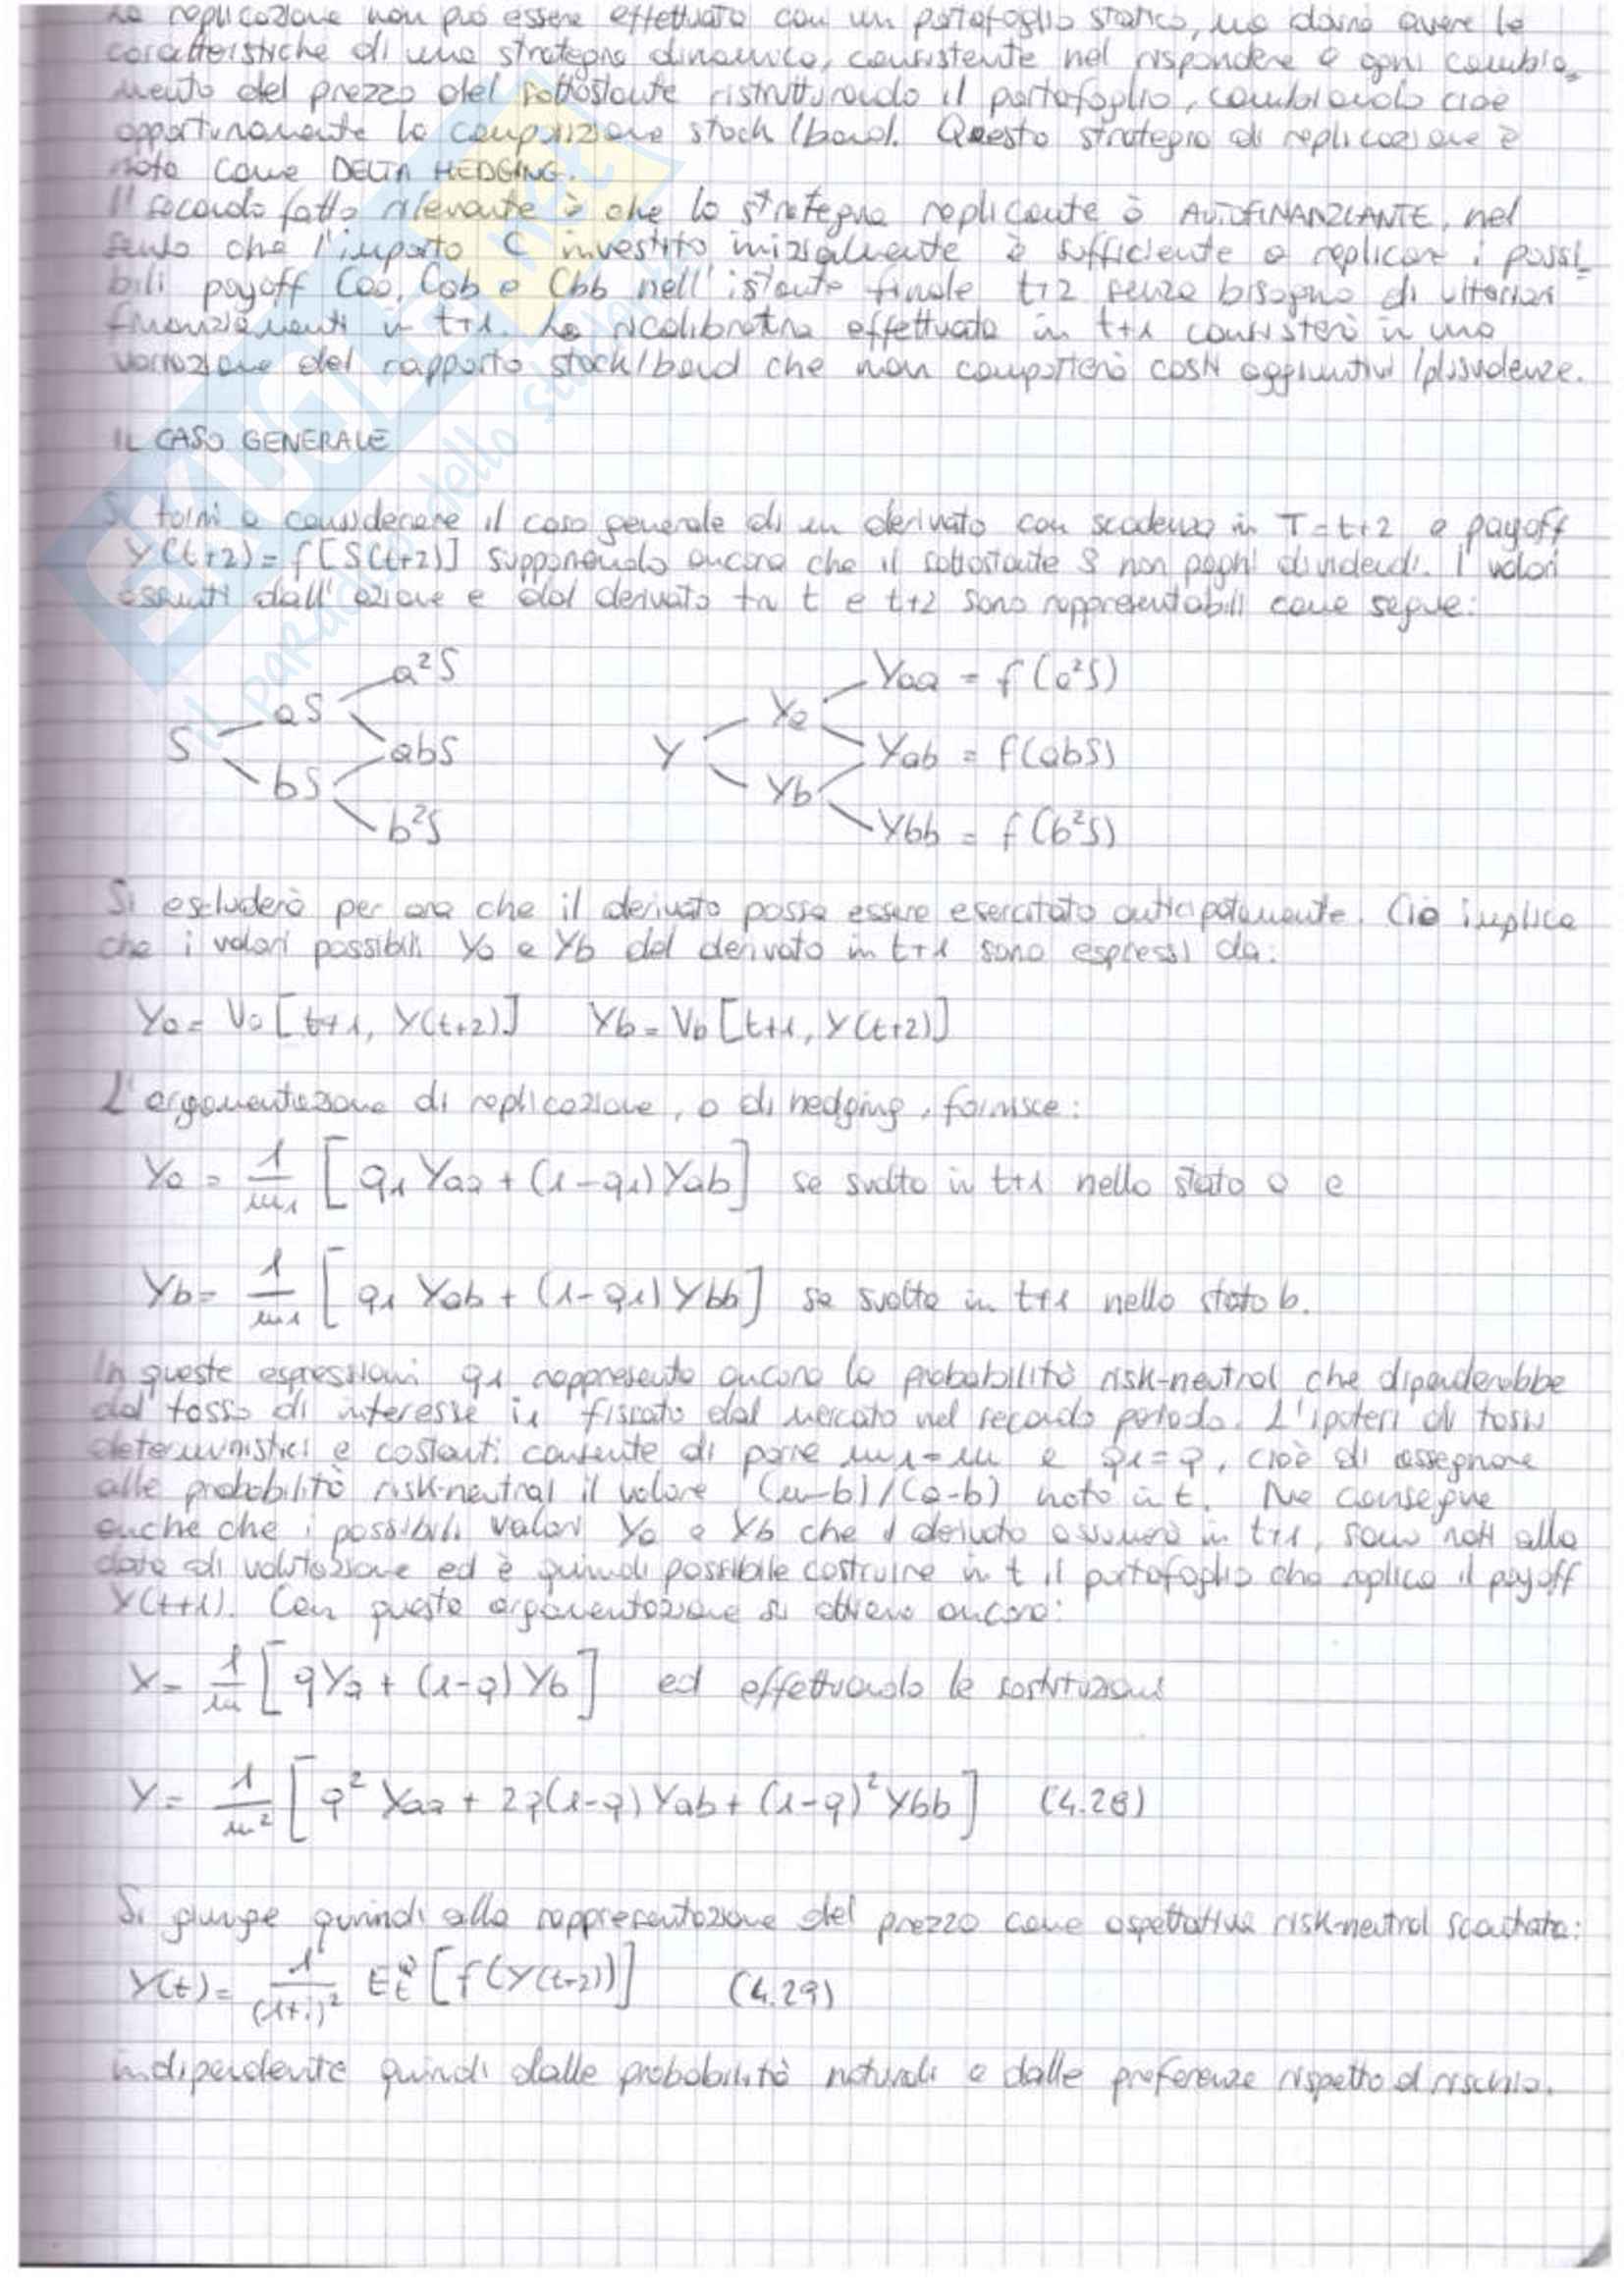 La replicazione non può essere effettuata con un portafoglio statico, ma dovrà avere le
caratteristiche di una strategia dinamica, consistente nel rispondere a ogni cambia-
mento del prezzo del sottostante ristrutturando il portafoglio, cambiando cioè
opportunamente la composizione stock/bond. Questa strategia di replicazione è
nota come DELTA HEDGING.
Il secondo fatto rilevante è che la strategia replicante è AUTOFINANZIANTE, nel
senso che l'importo C investito inizialmente è sufficiente a replicare i possi-
bili payoff Caa, Cab e Cbb nell'istante finale t+2 senza bisogno di ulteriori
finanziamenti in t+1. La ricalibratura effettuata in t+1 consisterà in una
variazione del rapporto stock/bond che non comporterà costi aggiuntivi /plusvalenze.
IL CASO GENERALE
Si torni a considerare il caso generale di un derivato con scadenza in T=t+2 e payoff
Y(t+2)=f[S(t+2)] supponendo ancora che il sottostante S non paghi dividendi. I valori
assunti dall'azione e dal derivato tra t e t+2 sono rappresentabili come segue:
a²S Yaa = f(a²S)
aS Ya
S abS Y Yab = f(abS)
bS Yb
b²S Ybb = f(b²S)
Si escluderà per ora che il derivato possa essere esercitato anticipatamente. Ciò implica
che i valori possibili Ya e Yb del derivato in t+1 sono espressi da:
Ya = Va[t+1, Y(t+2)] Yb = Vb[t+1, Y(t+2)]
L'argomentazione di replicazione, o di hedging, fornisce:
Ya = 1/m1 [q1 Yaa + (1-q1) Yab] se svolta in t+1 nello stato a e
Yb = 1/m1 [q1 Yab + (1-q1) Ybb] se svolta in t+1 nello stato b.
In queste espressioni q1 rappresenta ancora la probabilità risk-neutral che dipenderebbe
dal tasso di interesse i1 fissato dal mercato nel secondo periodo. L'ipotesi di tassi
deterministici e costanti consente di porre m1=m e q1=q, cioè di assegnare
alle probabilità risk-neutral il valore (m-b)/(a-b) noto in t. Ne consegue
anche che i possibili valori Ya e Yb che il derivato assumerà in t+1, sono noti alla
data di valutazione ed è quindi possibile costruire in t il portafoglio che replica il payoff
Y(t+1). Con questa argomentazione si ottiene ancora:
Y = 1/m [qYa + (1-q) Yb] ed effettuando le sostituzioni
Y = 1/m² [q² Yaa + 2q(1-q) Yab + (1-q)² Ybb] (4.28)
Si giunge quindi alla rappresentazione del prezzo come aspettativa risk-neutral scontata:
Y(t) = 1/(1+i)² Et^Q [f(Y(t+2))] (4.29)
indipendente quindi dalle probabilità naturali e dalle preferenze rispetto al rischio.